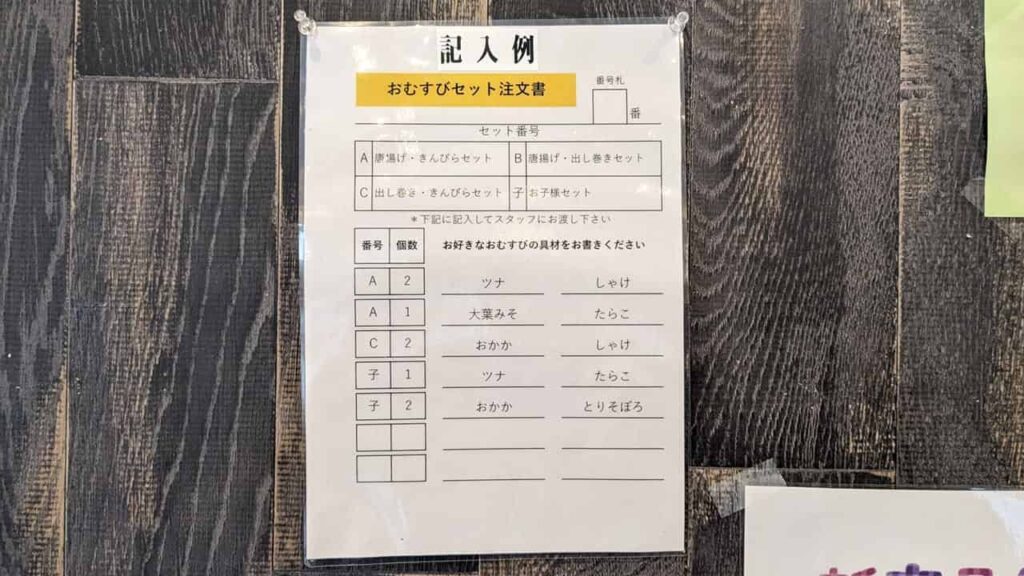 記入例
おむすびセット注文書
番号札
番
セット番号
A 唐揚げ・きんぴらセット B 唐揚げ・出し巻きセット
C 出し巻き・きんぴらセット 子 お子様セット
＊下記に記入してスタッフにお渡し下さい
番号 個数 お好きなおむすびの具材をお書きください
A 2 ツナ しゃけ
A 1 大葉みそ たらこ
C 2 おかか しゃけ
子 1 ツナ たらこ
子 2 おかか とりそぼろ